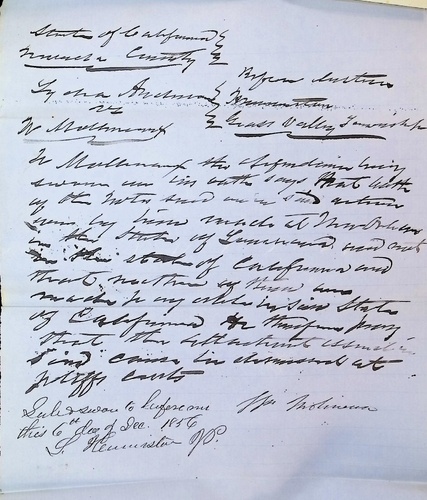 State of California
Nevada County
Before Justice
Lydia Anderson
vs
Grass Valley Township
W Mollineaux
W Mollineaux the defendant being
sworn on his oath says that both
of the notes sued on in said action
were by him made at New Orleans
in the State of Louisiana and not
in the state of California and
that neither of them are
made payable in said State
of California He therefore prays
that the attachment
said cause be dismissed at
pltffs costs
Wm
Subd & sworn to before me
this 6th day of Dec. 1856
S. J.P.